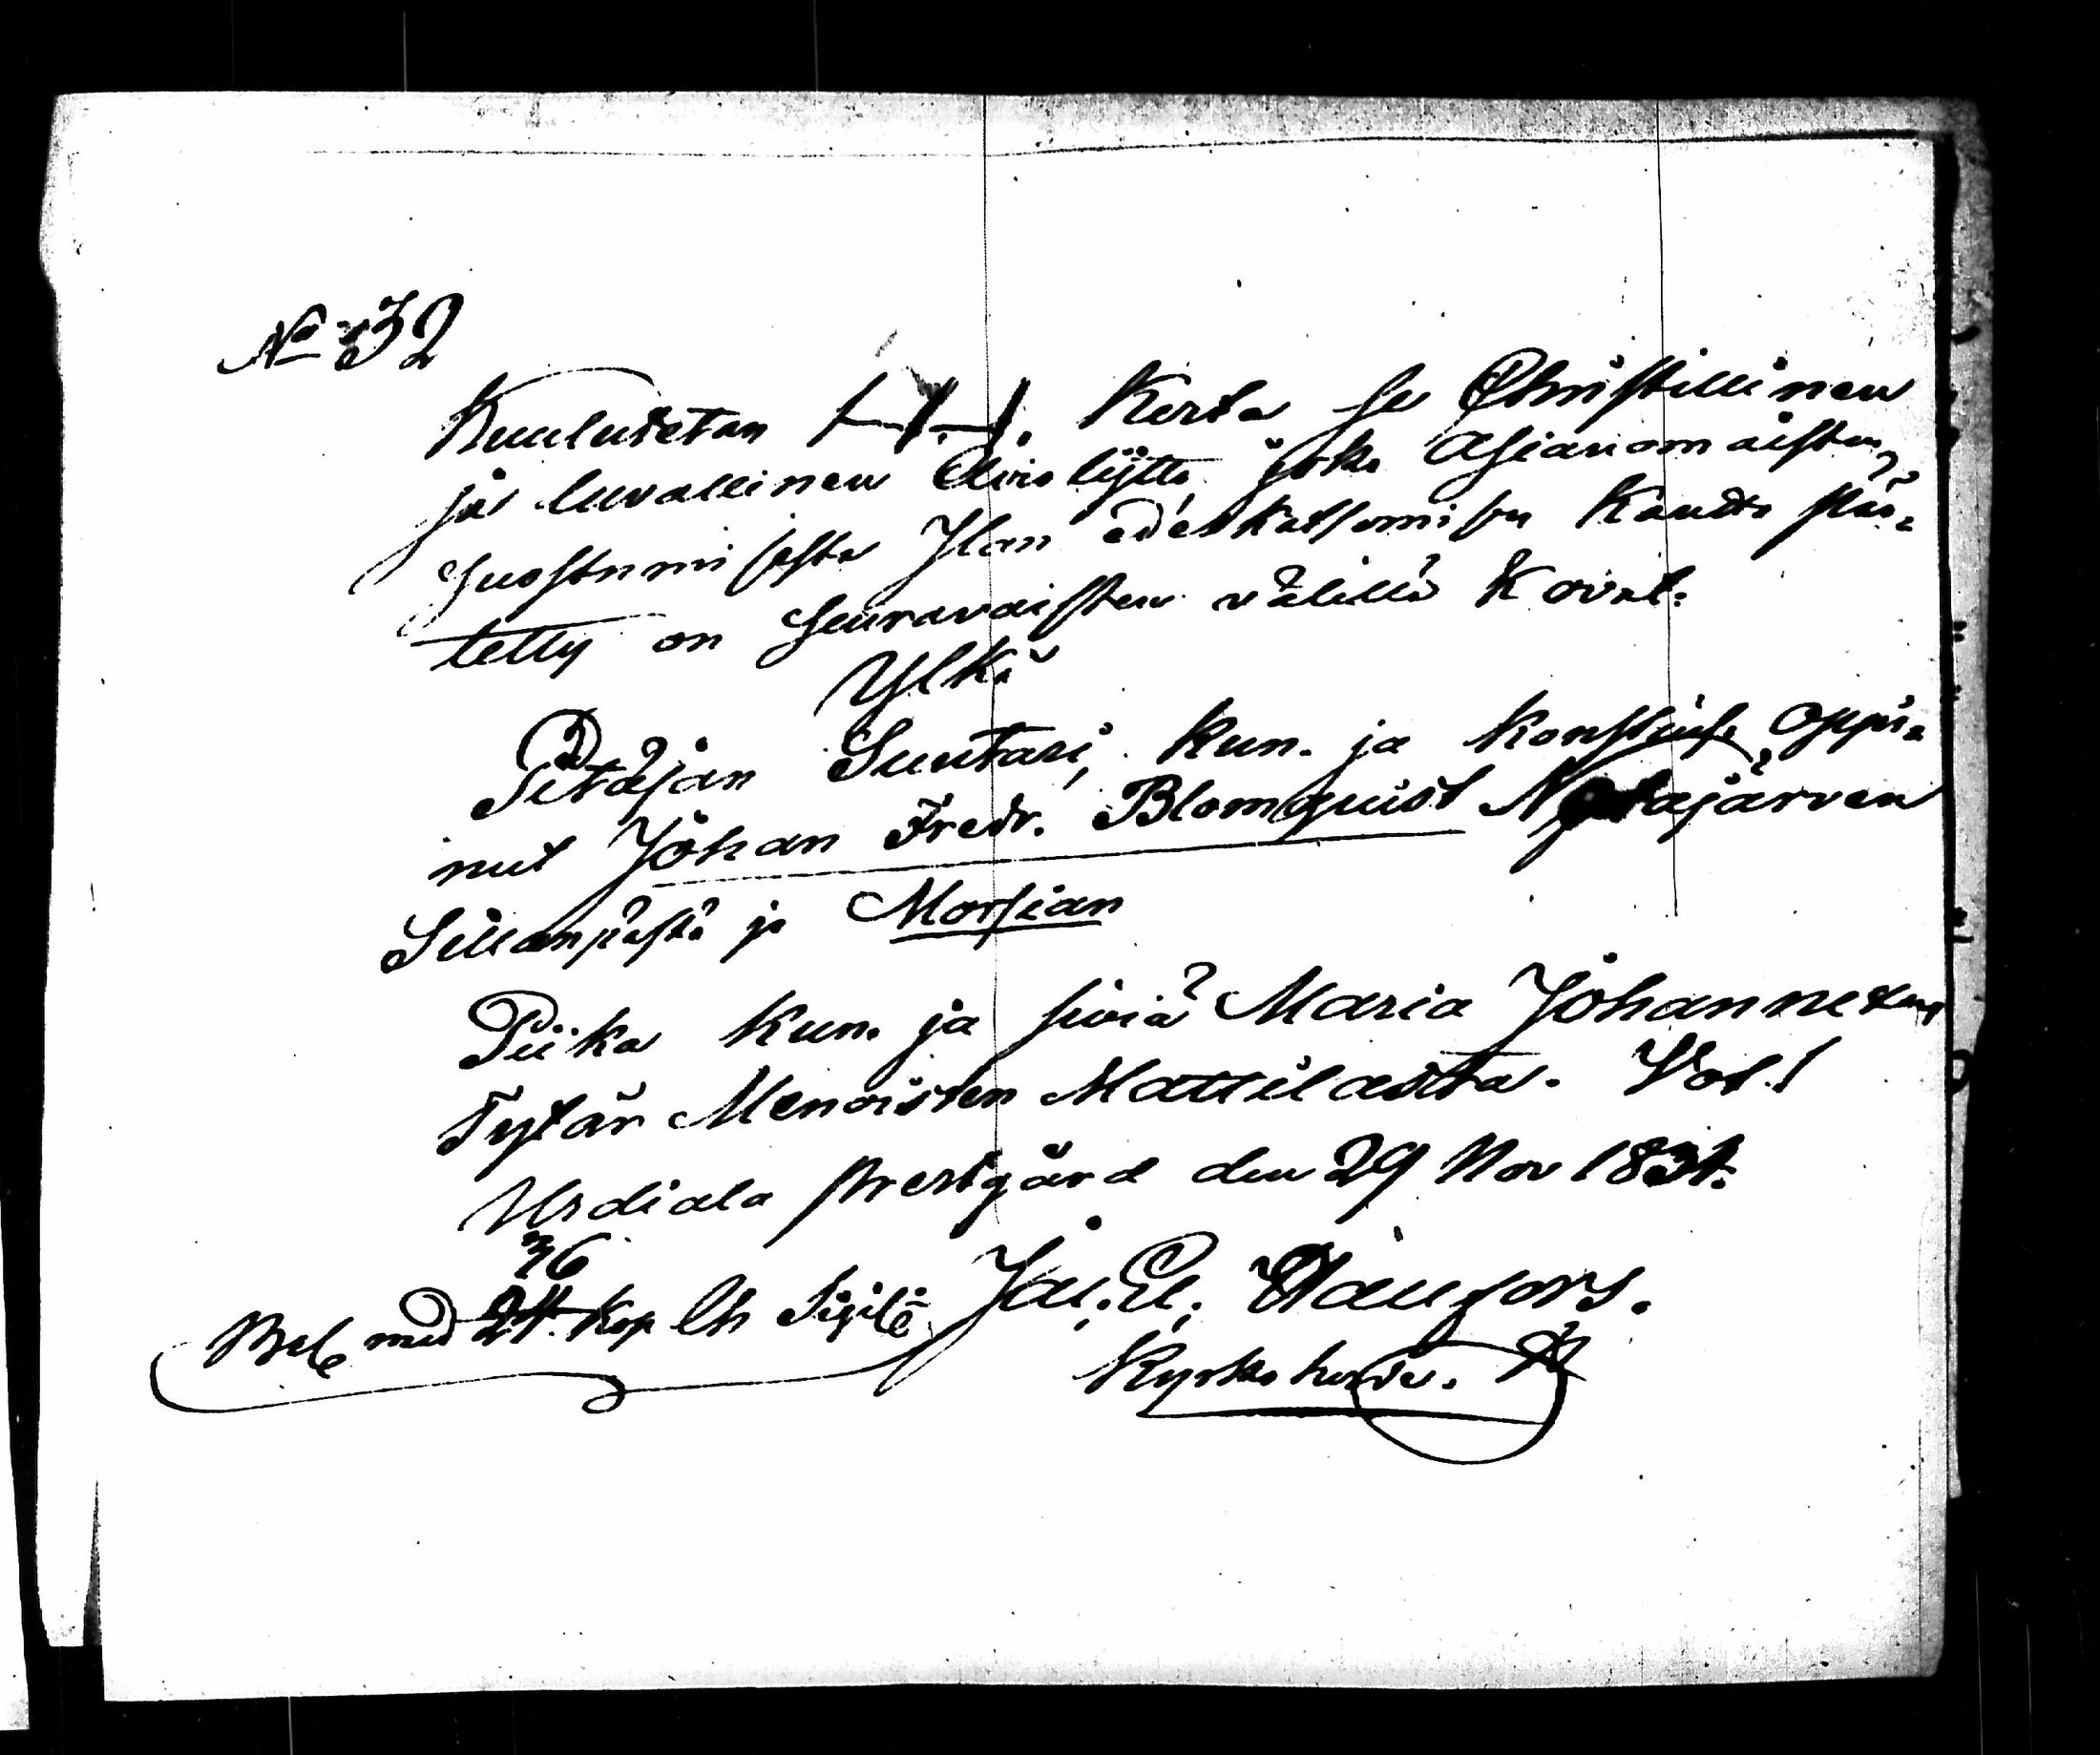 No 32
Kuulutetan 1. Kerta se Christillinen
ja luvallinen Avioliјtto joka Asianomaisten
suostumisesta Ilan edeskatsomisen kautta pää=
tetty on seuravaisten välillä Koval.
Ylkä
Pitäjän Suutari, kun. ja konstisch. oppi=
nut Johan Fredr. Blomquist Nutajärven
Sillanpästä ja Morsian
Piika kun. ja siviä Maria Johannexen
Tytär Menoisten Mattilasta. Vot!
Urdiala Prestgård den 29 Nov 1831.
36
Bel. med 24 kop Ch Sigil
Kyrkoherde.